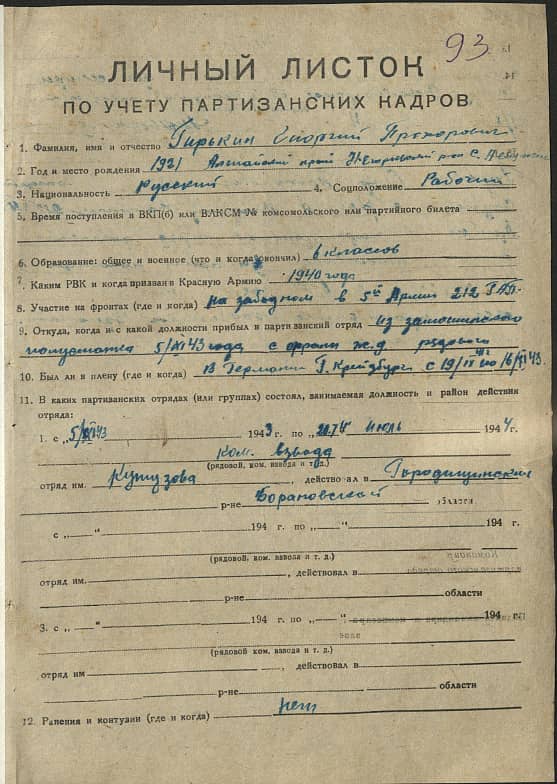 93
ЛИЧНЫЙ ЛИСТОК
ПО УЧЕТУ ПАРТИЗАНСКИХ КАДРОВ
1. Фамилия, имя и отчество Гирькин Георгий Прохорович
2. Год и место рождения 1921 Алтайский край
3. Национальность Русский 4. Соцположение Рабочий
5. Время поступления в ВКП(б) или ВЛКСМ № комсомольского или партийного билета
6. Образование: общее и военное (что и когда окончил) 6 классов
7. Каким РВК и когда призван в Красную Армию 1940 года
8. Участие на фронтах (где и когда) на западном в 5ой Армии 212
9. Откуда, когда и с какой должности прибыл в партизанский отряд из
5/XI 43 года с ж.д. рядового
10. Был ли в плену (где и когда) В Германии Г. Крейцбург с 19/
11. В каких партизанских отрядах (или группах) состоял, занимаемая должность и район действия
отряда:
1. с 5/XI 43 1943 г. по июль 1944 г.
Ком. взвода
(рядовой, ком. взвода и т. д.)
отряд им. Кутузова, действовал в Городищенском
р-не Барановской области
с „—“ 194 г. по „—“ 194 г.
(рядовой, ком. взвода и т. д.)
отряд им. , действовал в
р-не области
3. с „—“ 194 г. по „—“ 194 г.
(рядовой, ком. взвода и т. д.)
отряд им , действовал в
р-не области
12. Ранения и контузии (где и когда) нет